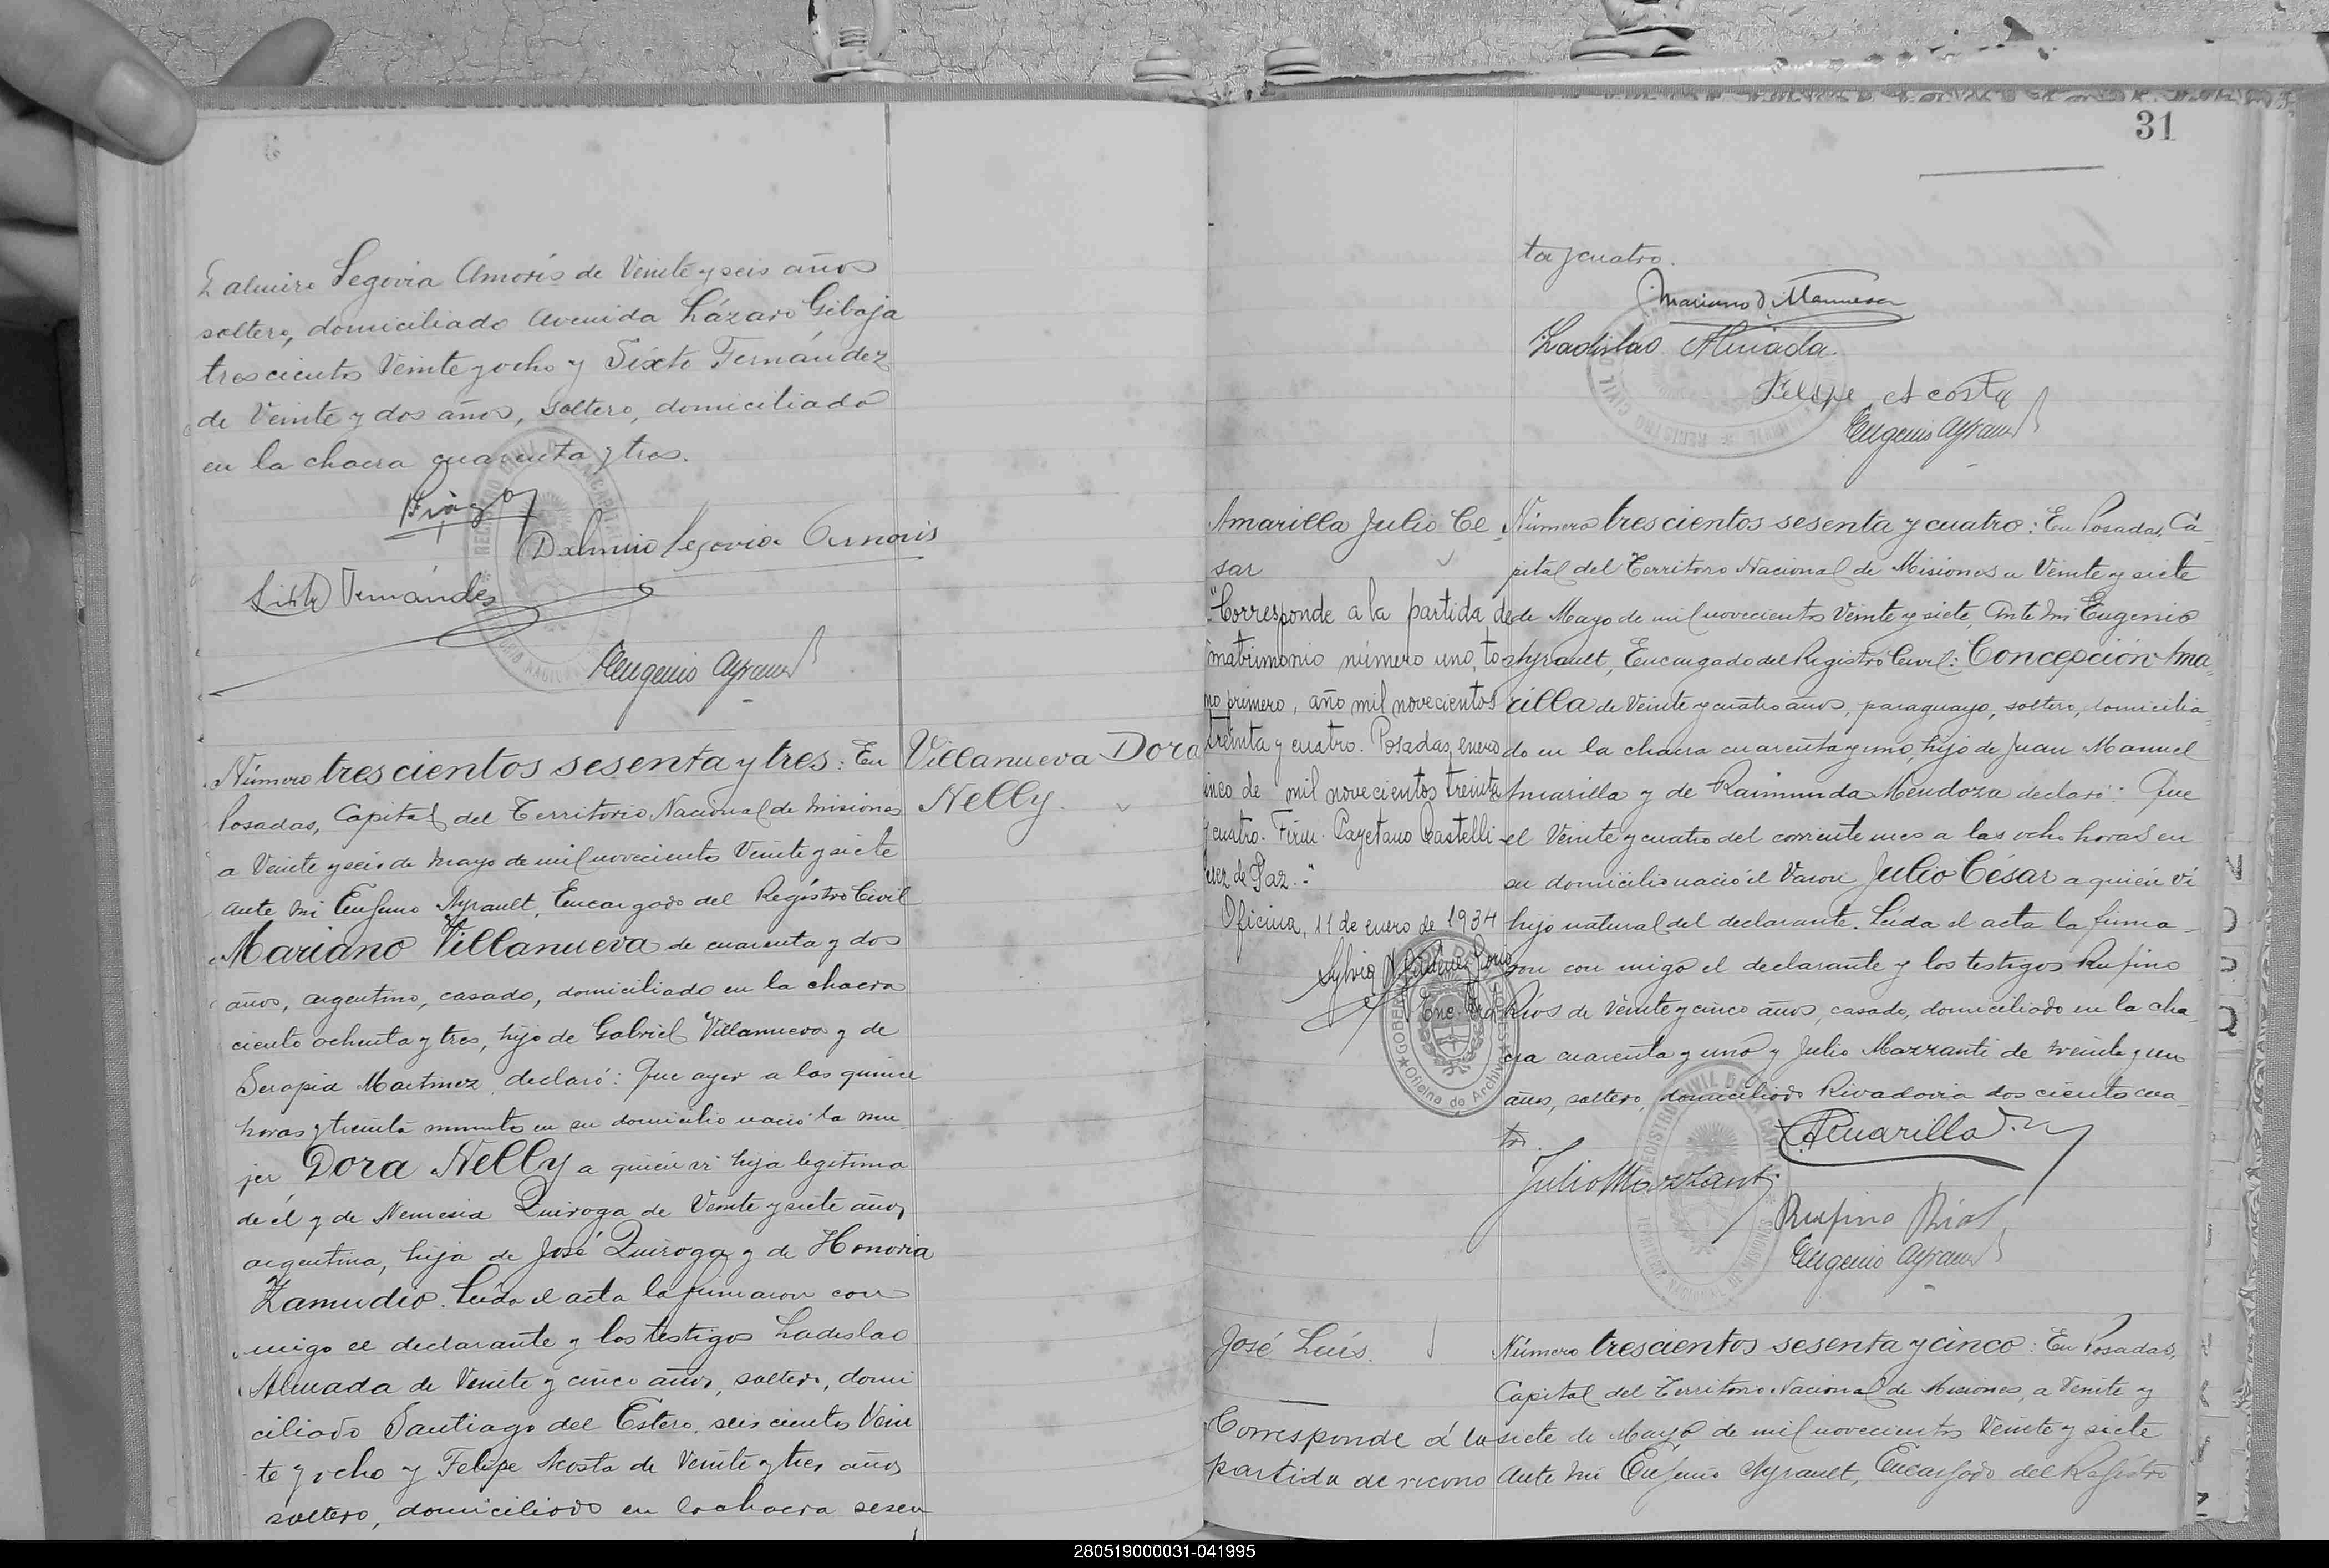 Dalmiro Segovia Amorís de Veinte y seis años
soltero, domiciliado Avenida Lázaro Gibaja
trescientos Veinte y ocho y Sixto Fernández
de Veinte y dos años, soltero, domiciliado
en la chacra cuarenta y tres.
Dalmiro Segovia Amoris
Sixto Fernández
Eugenio Ayrault
Villanueva Dora
Nelly.
Número trescientos sesenta y tres: En
Posadas, Capital del Territorio Nacional de Misiones
a Veinte y seis de Mayo de mil novecientos Veinte y siete
ante mi Eugenio Ayrault, Encargado del Registro Civil
Mariano Villanueva de cuarenta y dos
años, argentino, casado, domiciliado en la chacra
ciento ochenta y tres, hijo de Gabriel Villanueva y de
Serapia Martinez, declaró: Que ayer a las quince
horas y treinta minutos en su domicilio nació la mu-
jer Dora Nelly a quien vi hija legitima
de él y de Nemesia Quiroga de Veinte y siete años,
argentina, hija de José Quiroga y de Honoria
Zamudio. Leída el acta la firmaron con
migo el declarante y los testigos Ladislao
Almada de Veinte y cinco años, soltero, domi
ciliado Santiago del Estero seis cientos Vein
te y ocho y Felipe Acosta de Veinte y tres años
soltero, domiciliado en la chacra sesen
31
ta y cuatro.
Mariano Villanueva
Ladislao Almada.
Felipe Acosta
Eugenio Ayrault
Amarilla Julio Cé
sar
"Corresponde a la partida de
matrimonio número uno, to
mo primero, año mil novecientos
treinta y cuatro. Posadas, enero
cinco de mil novecientos treinta
y cuatro. Firm. Cayetano Castelli
Juez de Paz.-"
Oficina, 11 de enero de 1934
Número trescientos sesenta y cuatro: En Posadas, Ca-
pital del Territorio Nacional de Misiones a Veinte y siete
de Mayo de mil novecientos Veinte y siete, Ante mi Eugenio
Ayrault, Encargado del Registro Civil: Concepción Ama-
rilla de Veinte y cuatro años, paraguayo, soltero, domicilia-
do en la chacra cuarenta y uno, hijo de Juan Manuel
Amarilla y de Raimunda Mendoza declaró: Que
el Veinte y cuatro del corriente mes a las ocho horas en
su domicilio nació el Varon Julio César a quién vi
hijo natural del declarante. Leída el acta la firma-
ron con migo el declarante y los testigos Rufino
Ríos de Veinte y cinco años, casado, domiciliado en la cha-
cra cuarenta y uno y Julio Mazzanti de treinta y un
años, soltero, domiciliado Rivadavia dos cientos cua-
tro.
CAmarilla
Julio Mazzanti
Rufino Rios
Eugenio Ayrault
José Luís.
Corresponde á la
partida de recono
Número trescientos sesenta y cinco: En Posadas,
Capital del Territorio Nacional de Misiones, a Veinte y
siete de Mayo de mil novecientos Veinte y siete
Ante mi Eugenio Ayrault, Encargado del Registro
280519000031-041995